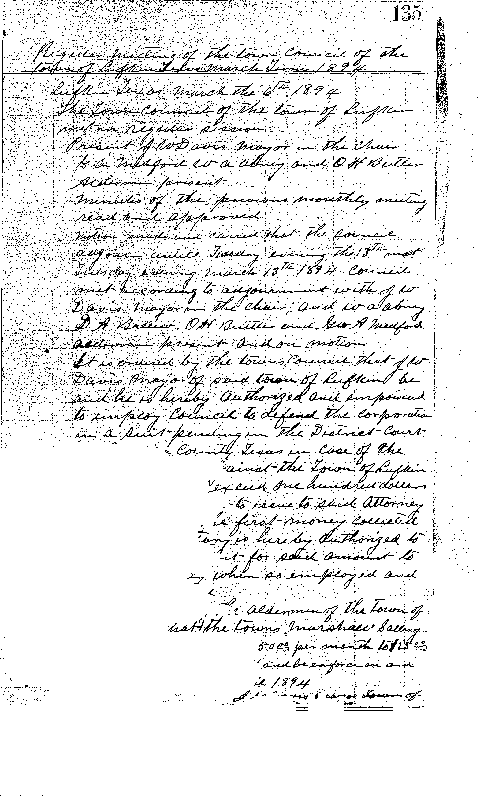 135
Regular meeting of the town Council of the
town of Lufkin Texas March Term 1894
Lufkin Texas March the 6th 1894
The town Council of the town of Lufkin
met in regular session
Present J W Davis mayor in the chair
Medford W A Abney and O H Butler
aldermen present
Minutes of the previous monthly meeting
read and approved
motion made and carried that the council
adjourn until Tuesday evening the 13th inst
Tuesday evening March 13th 1894 Council
met according to adjournment with J W
Davis Mayor in the chair, and W A Abney
O H Butler and Geo A Medford
aldermen present and on motion
It is ordered by the towns Council that J W
Davis Mayor of said town of Lufkin be
and he is hereby Authorized and empowered
to employ Council to defend the corporation
in a suit pending in the District Court
County Texas in case of the
ainst the Town of Lufkin
exceed one hundred dollars
to issue to said Attorney
first money collected
is hereby Authorized to
it for said amount to
when so employed and
aldermen of the Town of
hat the towns Marshall
per month to
and be enforce in
1894
Town of